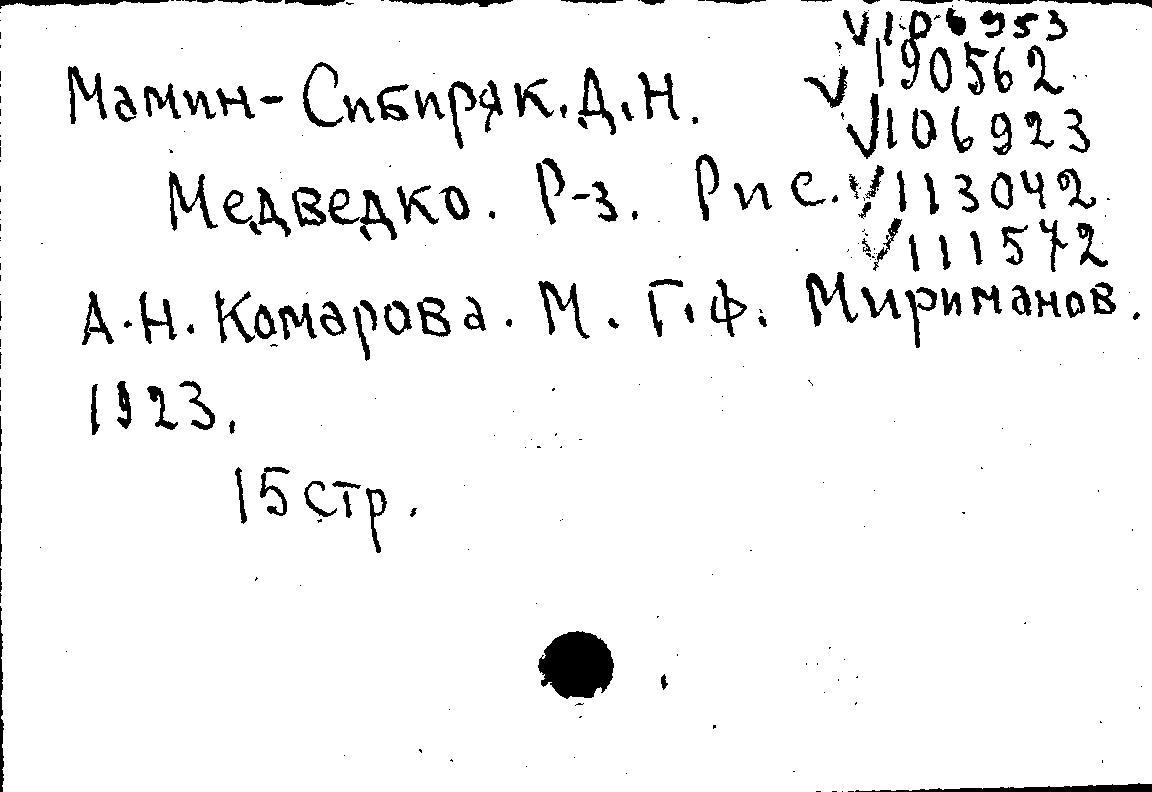 √106953
√190562
Мамин-Сибиряк. Д. Н.
√106923
Медведко. Р-з. Рис.
√113042
√111572
А. Н. Комарова. М. Г. Ф. Мириманов.
1923.
15 стр.